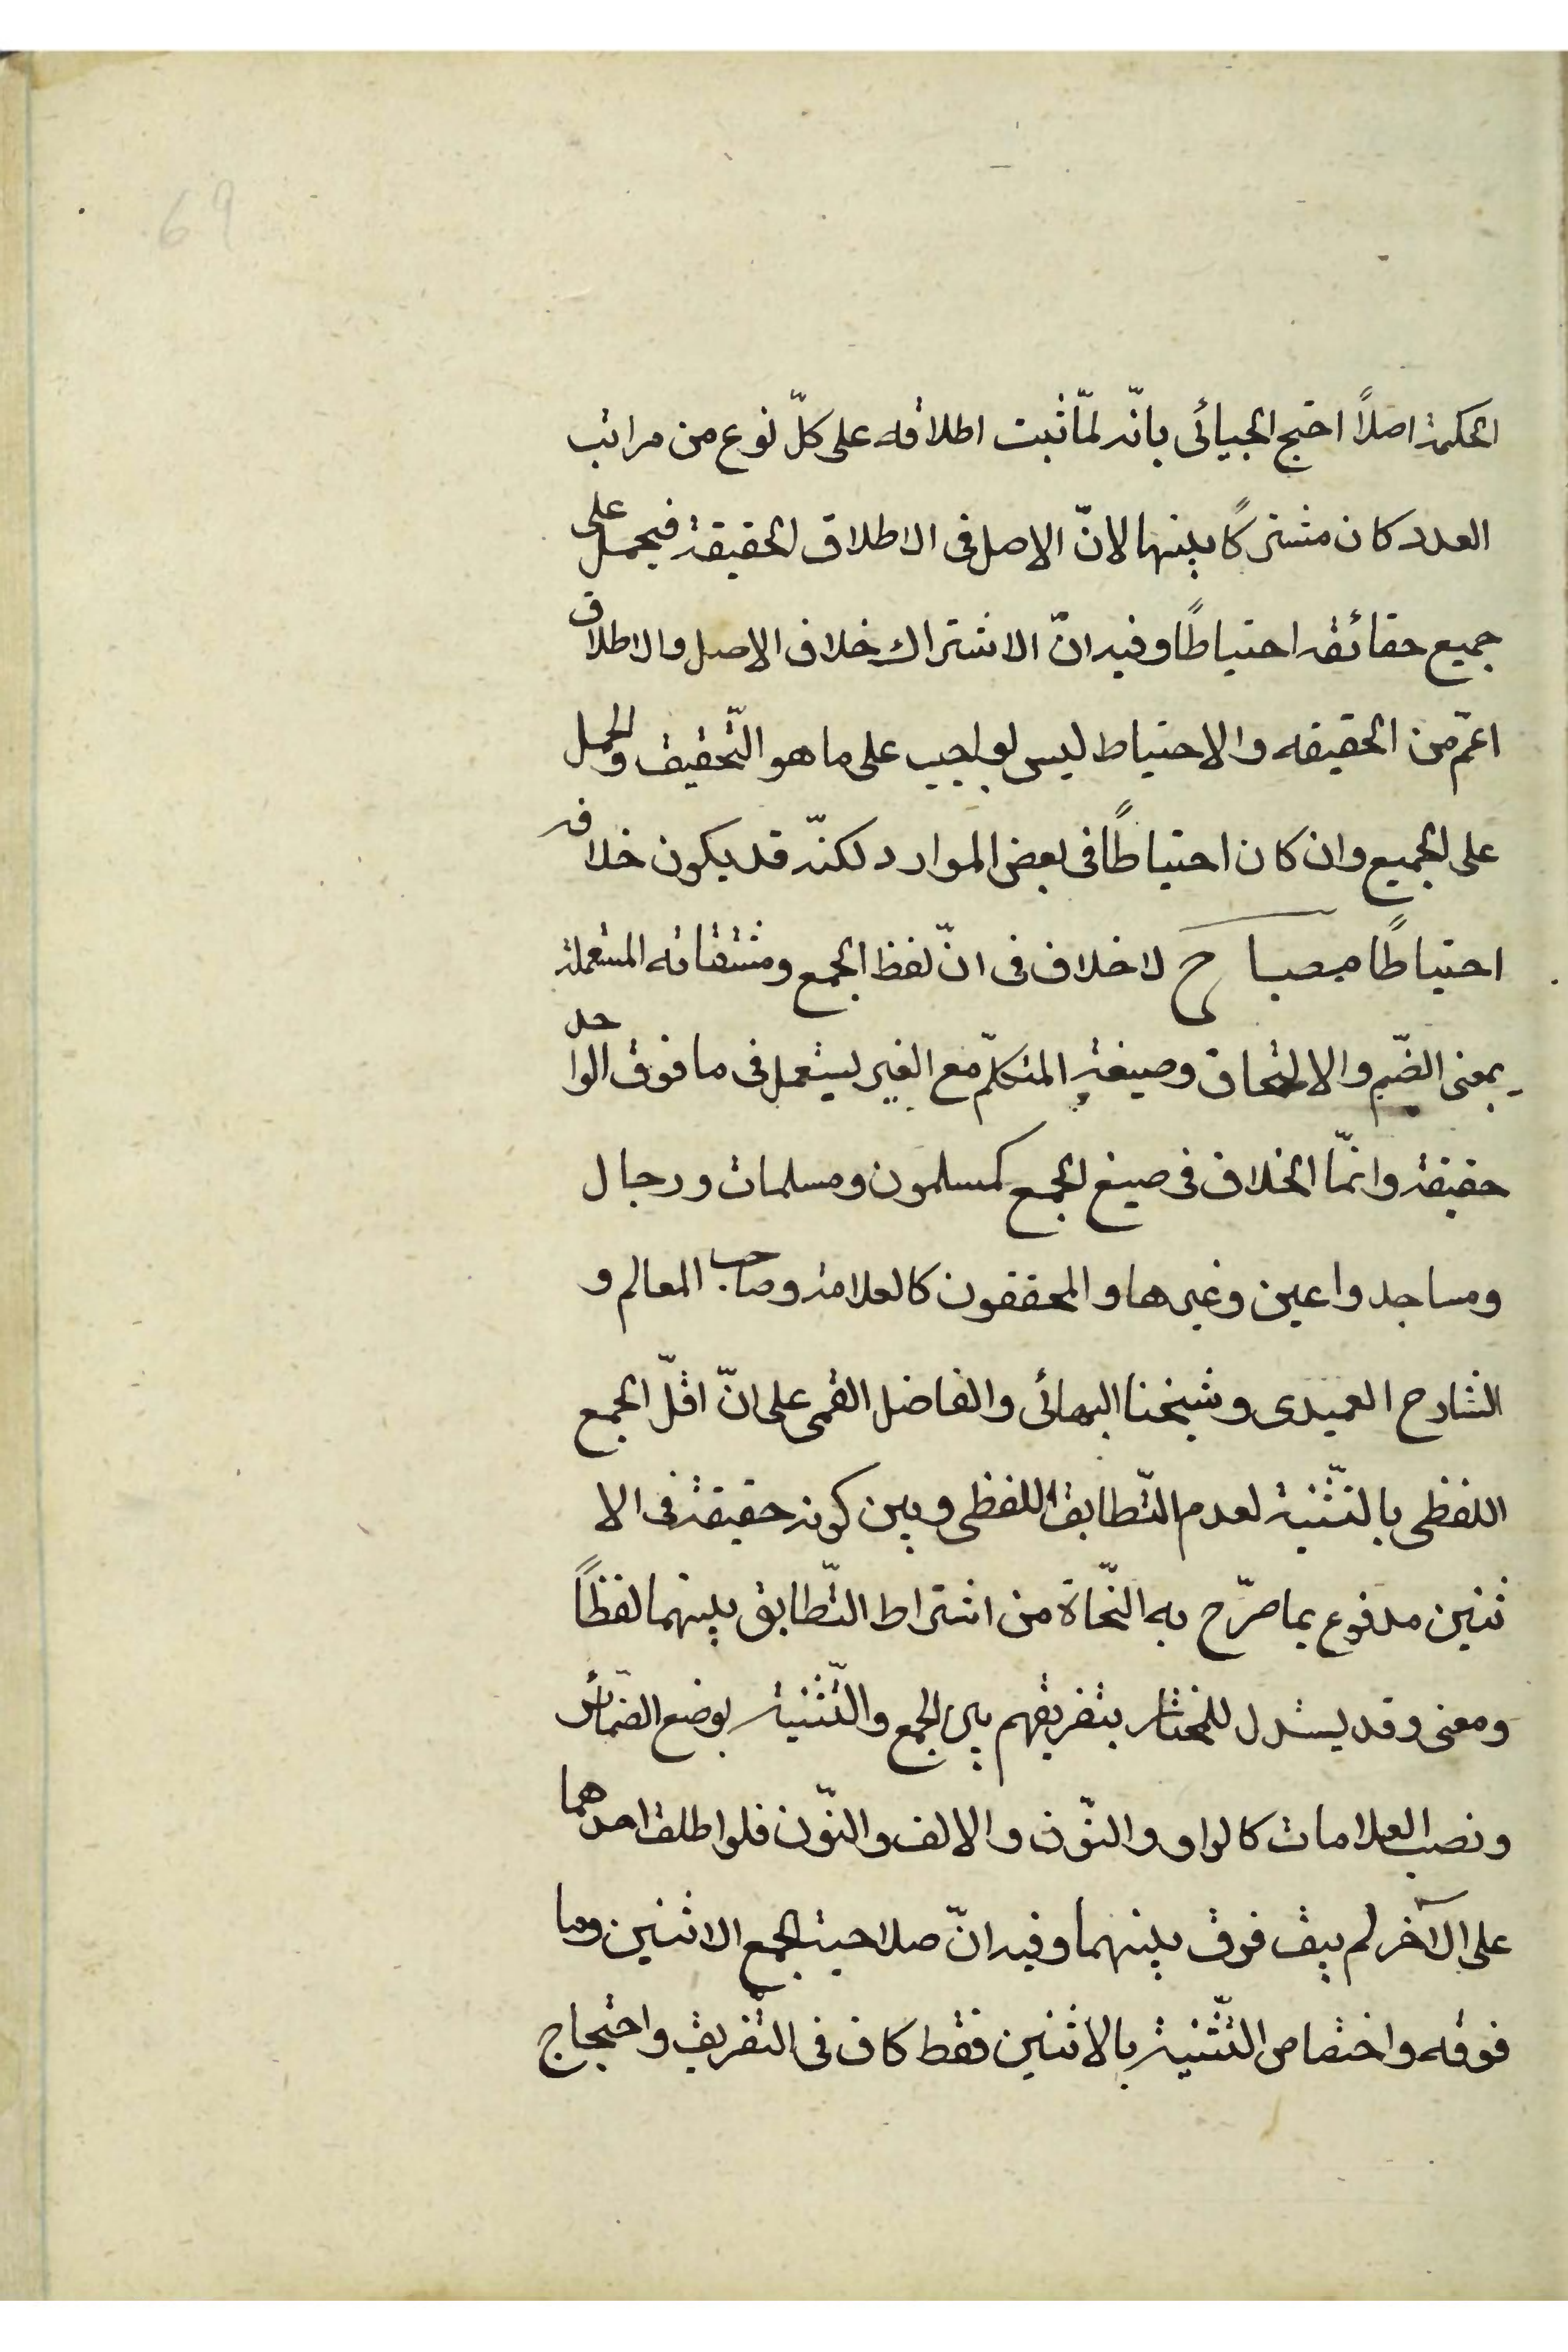 69
الحكمة اصلاً احتج الجبيائى بانّه لمّا ثبت اطلاقه على كلّ نوع من مراتب
العدد كان مشتركًا بينها لانّ الاصل فى الاطلاق الحقيقة فيحمل على
جميع حقائقه احتياطًا وفيه انّ الاشتراك خلاف الاصل والاطلاق
اعمّ من الحقيقه والاحتياط ليس بواجب على ما هو التّحقيق والحمل
على الجميع وان كان احتياطًا فى بعض الموارد لكنّه قد يكون خلافه
احتياطًا مصباح لا خلاف فى انّ لفظ الجمع ومشتقاته المستعملة
بمعنى الضّم والالتحاق وصيغة المتكلّم مع الغير يستعمل فى ما فوق الواحد
حقيقة وانّما الخلاف فى صيغ الجمع كمسلمون ومسلمات ورجال
ومساجد واعين وغيرها والمحققون كالعلامة وصاحب المعالم و
الشارح العميدى وشيخنا البهائى والفاضل القمى على انّ اقلّ الجمع
اللفظى بالتّثنية لعدم التّطابق اللفظى وبين كونه حقيقة فى الا
ثنين مدفوع بما صرّح به النّحاة من اشتراط التّطابق بينهما لفظًا
ومعنى وقد يستدل للمختار بتفريقهم بين الجمع والتّثنية بوضع الضّمائر
ونصب العلامات كالواو والنّون والالف والنّون فلو اطلق احدهما
على الآخر لم يبق فرق بينهما وفيه انّ صلاحية الجمع الاثنين وما
فوقه واختصاص التّثنية بالاثنين فقط كاف فى التفريق واحتجاج